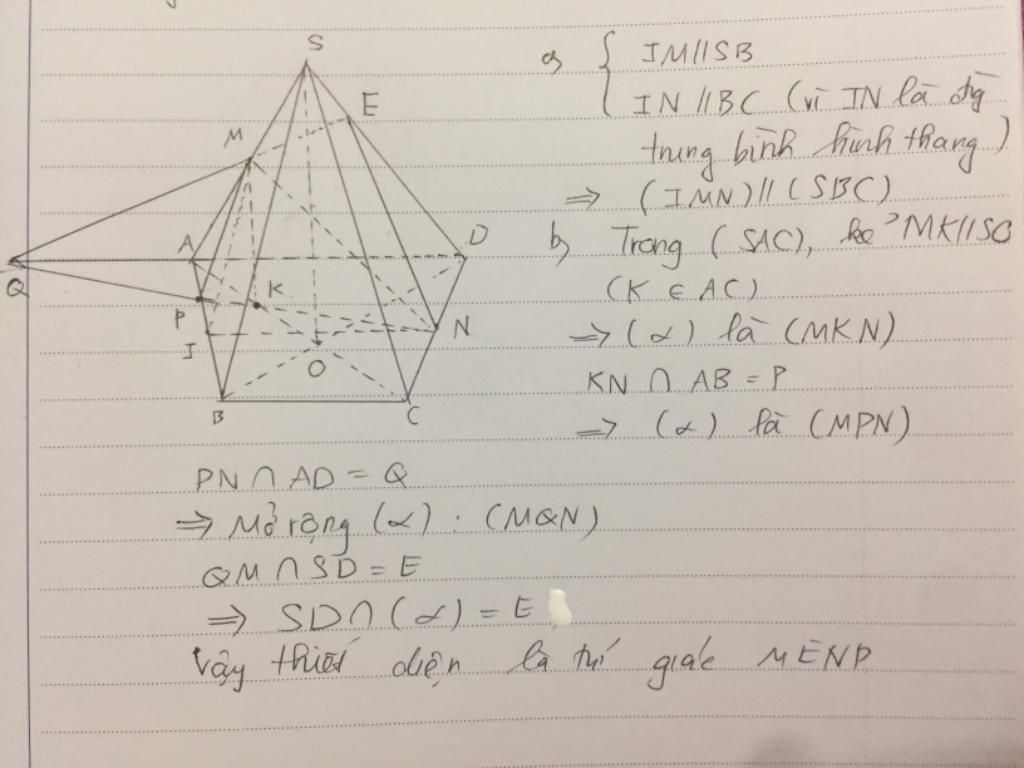 S
E
M
A
D
Q
K
P
N
I
O
B
C
a) { IM//SB
IN//BC (vì IN là đg
trung bình hình thang)
=> (IMN)//(SBC)
b) Trong (SAC), kẻ MK//SO
(K ∈ AC)
=> (α) là (MKN)
KN ∩ AB = P
=> (α) là (MPN)
PN ∩ AD = Q
=> Mở rộng (α) : (MQN)
QM ∩ SD = E
=> SD ∩ (α) = E
Vậy thiết diện là tứ giác MENP